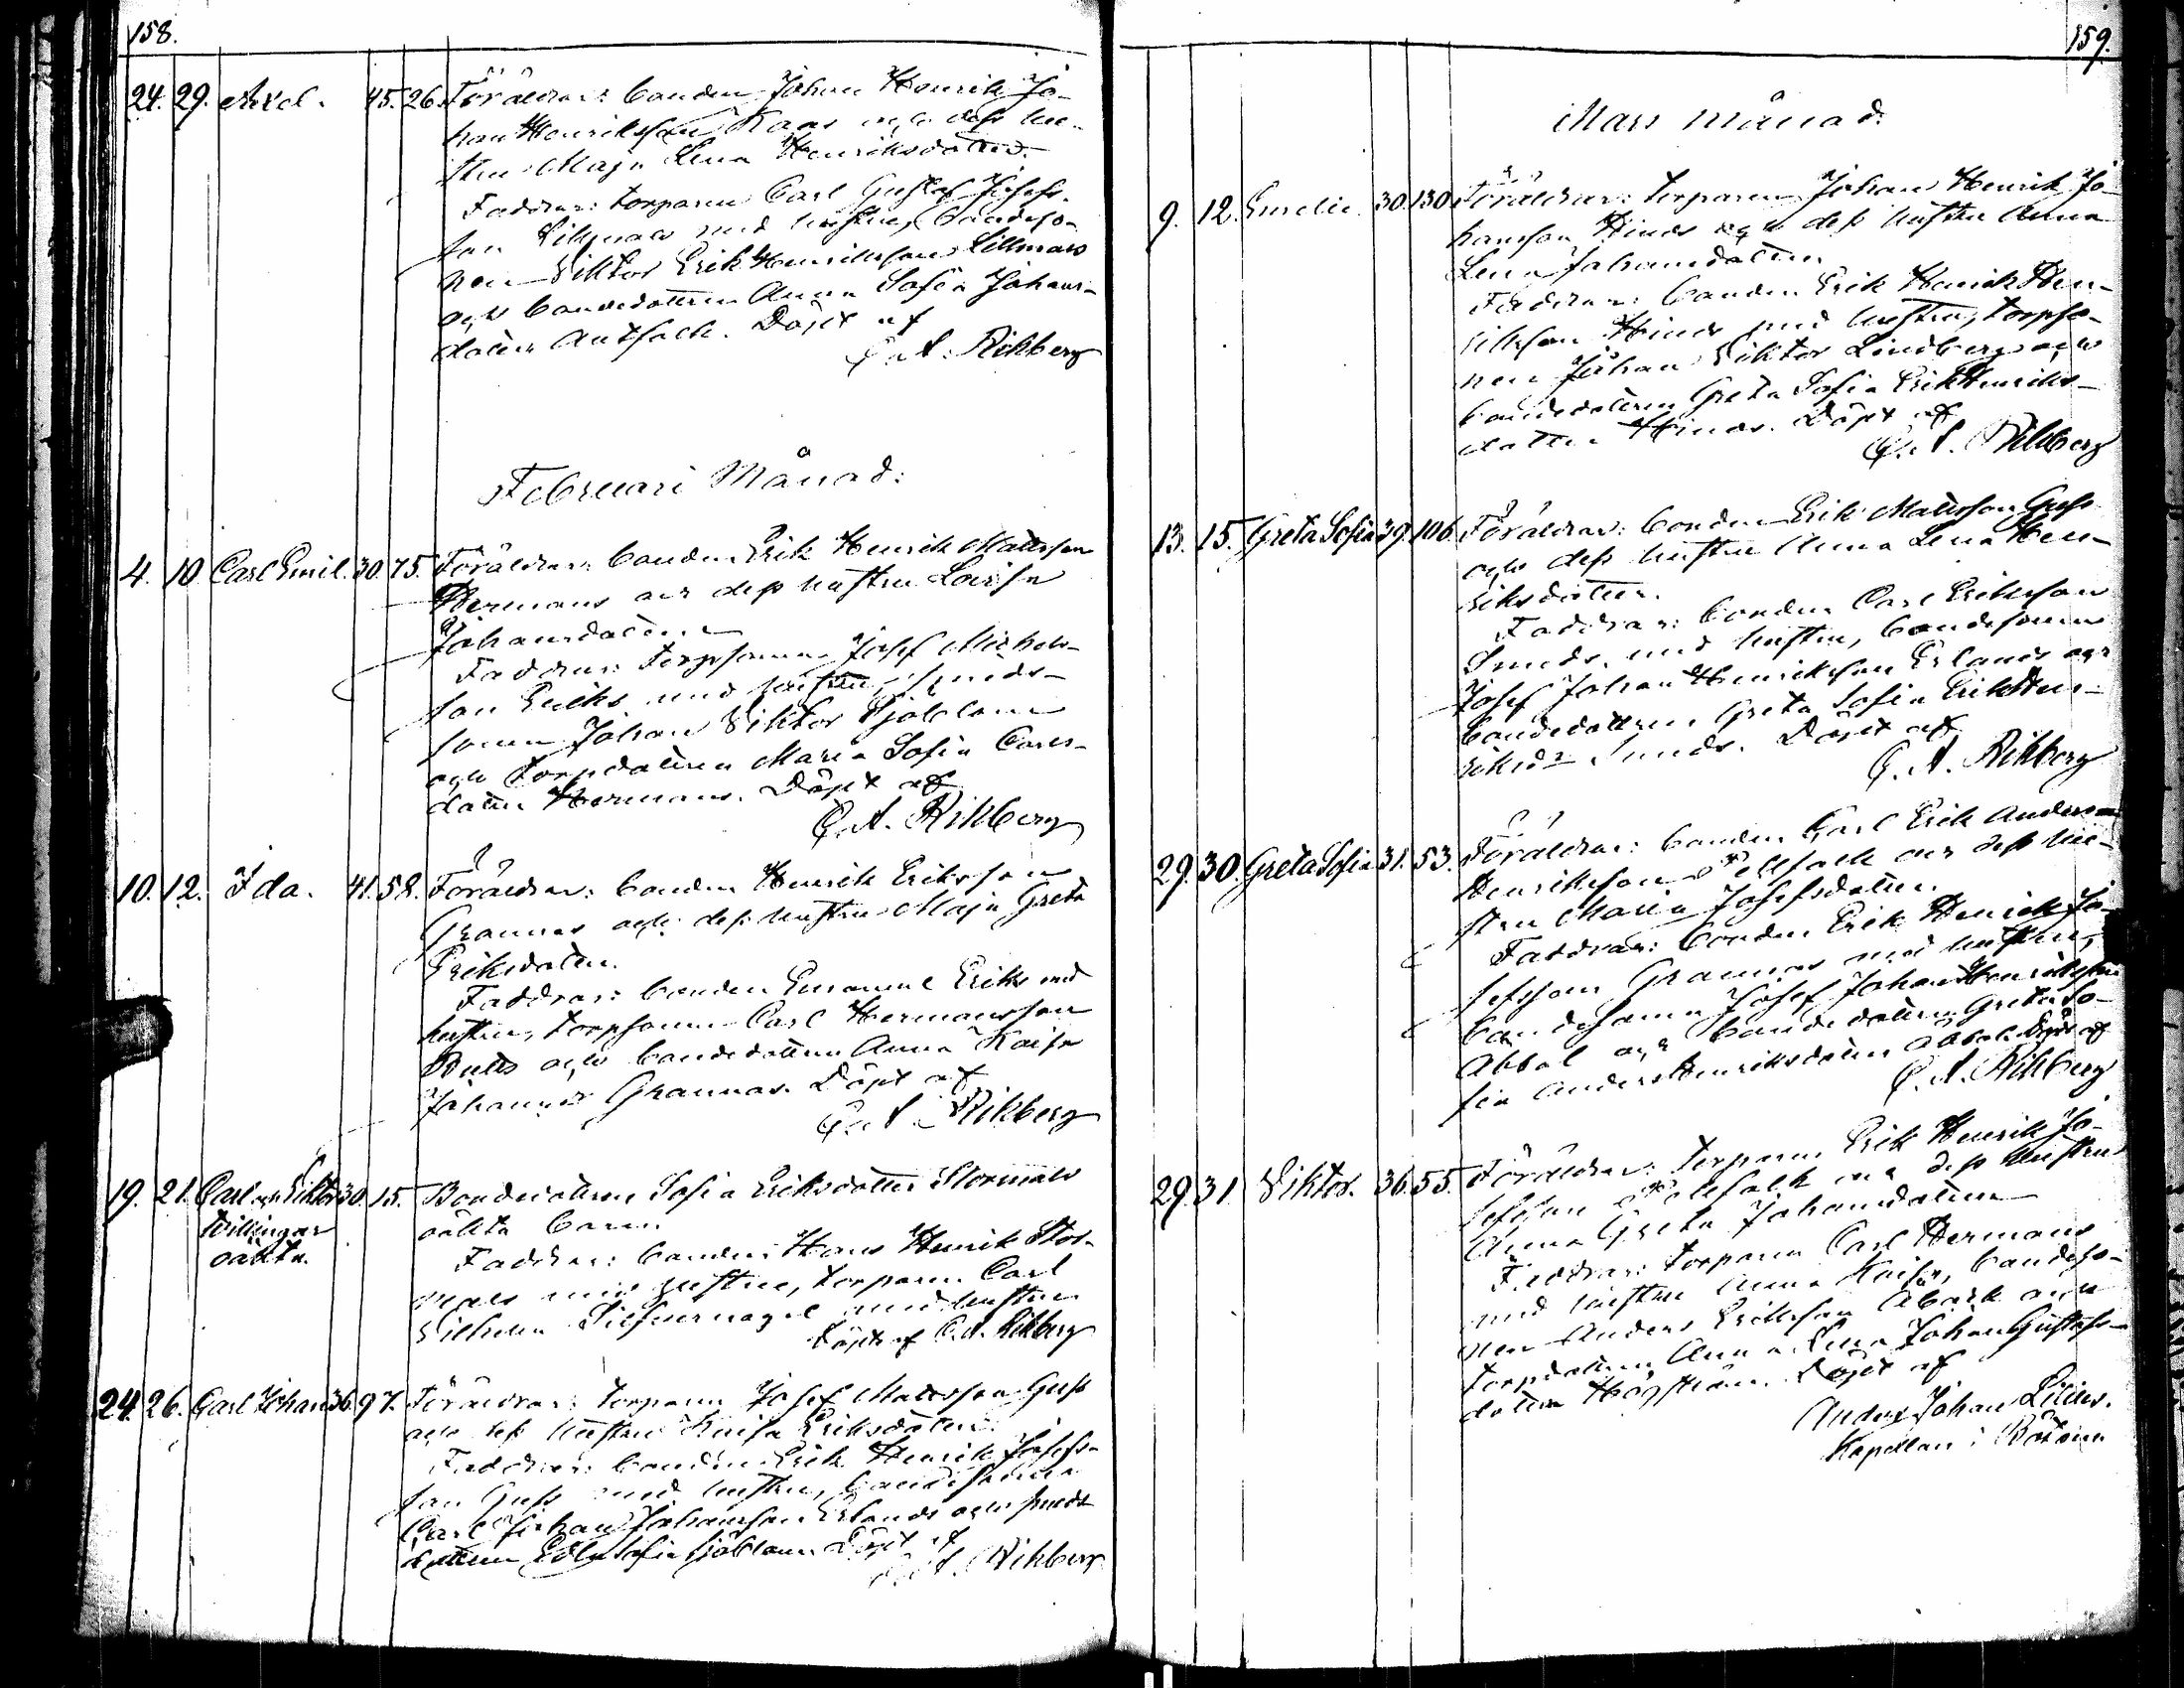 158.
24. 29. Axel. 45. 26. Föräldrar: bonden Johan Henrik Jo-
han Henriksson Kaas och dess hu-
stru Maja Lena Henriksdotter.
Faddrar: torparen Carl Gustaf Josefs-
son Lillmars med hustru, bondeso-
nen Viktor Erik Henriksson Lillmars
och bondedottren Anna Sofia Johans-
dotter Antfolk. Döpt af
C. A. Rikberg
Februari Månad:
4. 10. Carl Emil. 30. 75. Föräldrar: bonden Erik Henrik Mattsson
Hermans och dess hustru Lovisa
Johansdotter.
Faddrar: torpsonen Josef Michels-
son Eriks med hustru, smeds-
sonen Johan Viktor Sjöblom
och torpdottren Maria Sofia Carls-
dotter Hermans. Döpt af
C. A. Rikberg
10. 12. Ida. 41. 58. Föräldrar: bonden Henrik Eriksson
Grannas och dess hustru Maja Greta
Eriksdotter.
Faddrar: bonden Emanuel Eriks med
hustru, torpsonen Carl Hermansson
och bondedottren Anna Kaisa
Johansdr Grannas. Döpt af
C. A. Rikberg
19. 21. Carl och Viktor 30. 15. Bondedottren Sofia Eriksdotter Stormåls
tvillingar oäkta barn.
oäkta. Faddrar: bonden Hans Henrik Stor-
måls med hustru, torparen Carl
Vilhelm Silfvernagel med hustru
Döpte af C. A. Rikberg
24. 26. Carl Johan 36. 97. Föräldrar: torparen Josef Mattsson Guss
och dess hustru Kaisa Eriksdotter.
Faddrar: bonden Erik Henrik Josefs-
son Guss med hustru, bondesonen
Carl Johan Johansson Erlands och smeds-
dottren Edla Sofia Sjöblom. Döpt af
C. A. Rikberg
159.
Mars månad.
9. 12. Emelie. 30. 130. Föräldrar: torparen Johan Henrik Jo-
hansson Hinds och dess hustru Anna
Lena Johansdotter.
Faddrar: bonden Erik Henrik Hen-
riksson Hinds med hustru, torpso-
nen Johan Viktor Lindberg och
bondedottren Greta Sofia Erik Henriks-
dotter Hinds. Döpt af
C. A. Rikberg
13. 15. Greta Sofia 39. 106. Föräldrar: bonden Erik Mattsson Guss
och dess hustru Anna Lena Hen-
riksdotter.
Faddrar: bonden Carl Eriksson
Smeds med hustru, bondesonen
Josef Johan Henriksson Erlands och
bondedottren Greta Sofia Erik Hen-
riksdr Smeds. Döpt af
C. A. Rikberg
29. 30. Greta Sofia 31. 53. Föräldrar: bonden Carl Erik Anders
Henriksson Pellfolk och dess hu-
stru Maria Josefsdotter.
Faddrar: bonden Erik Henrik Jo-
sefsson Grannas med hustru,
bondesonen Josef Johan Henriksson
Abbol och bondedottren Greta So-
fia Anders Henriksdotter Abbol. Döpt af
C. A. Rikberg
29. 31. Viktor. 36. 55. Föräldrar: torparen Erik Henrik Jo-
sefsson Pellfolk och dess hustru
Anna Greta Johansdotter
Faddrar: torparen Carl Hermans
med hustru Anna Kaisa, bondeso-
nen Anders Eriksson och
torpdottren Anna Lena Johan Gustafs-
dotter Högström. Döpt af
Anders Johan Lilius.
Kapellan i Bötom